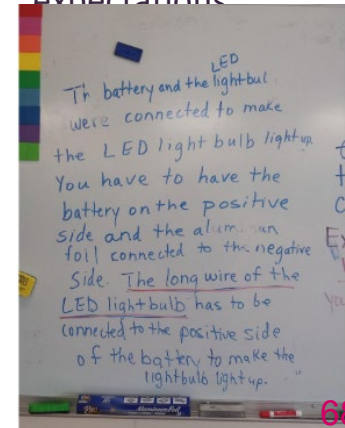 expectations
LED
The battery and the lightbul
were connected to make
the LED light bulb light up
You have to have the
battery on the positive
side and the
foil connected to the negative
Side. The long wire of the
LED lightbulb has to be
connected to the positive side
of the battery to make the
lightbulb light up.
68